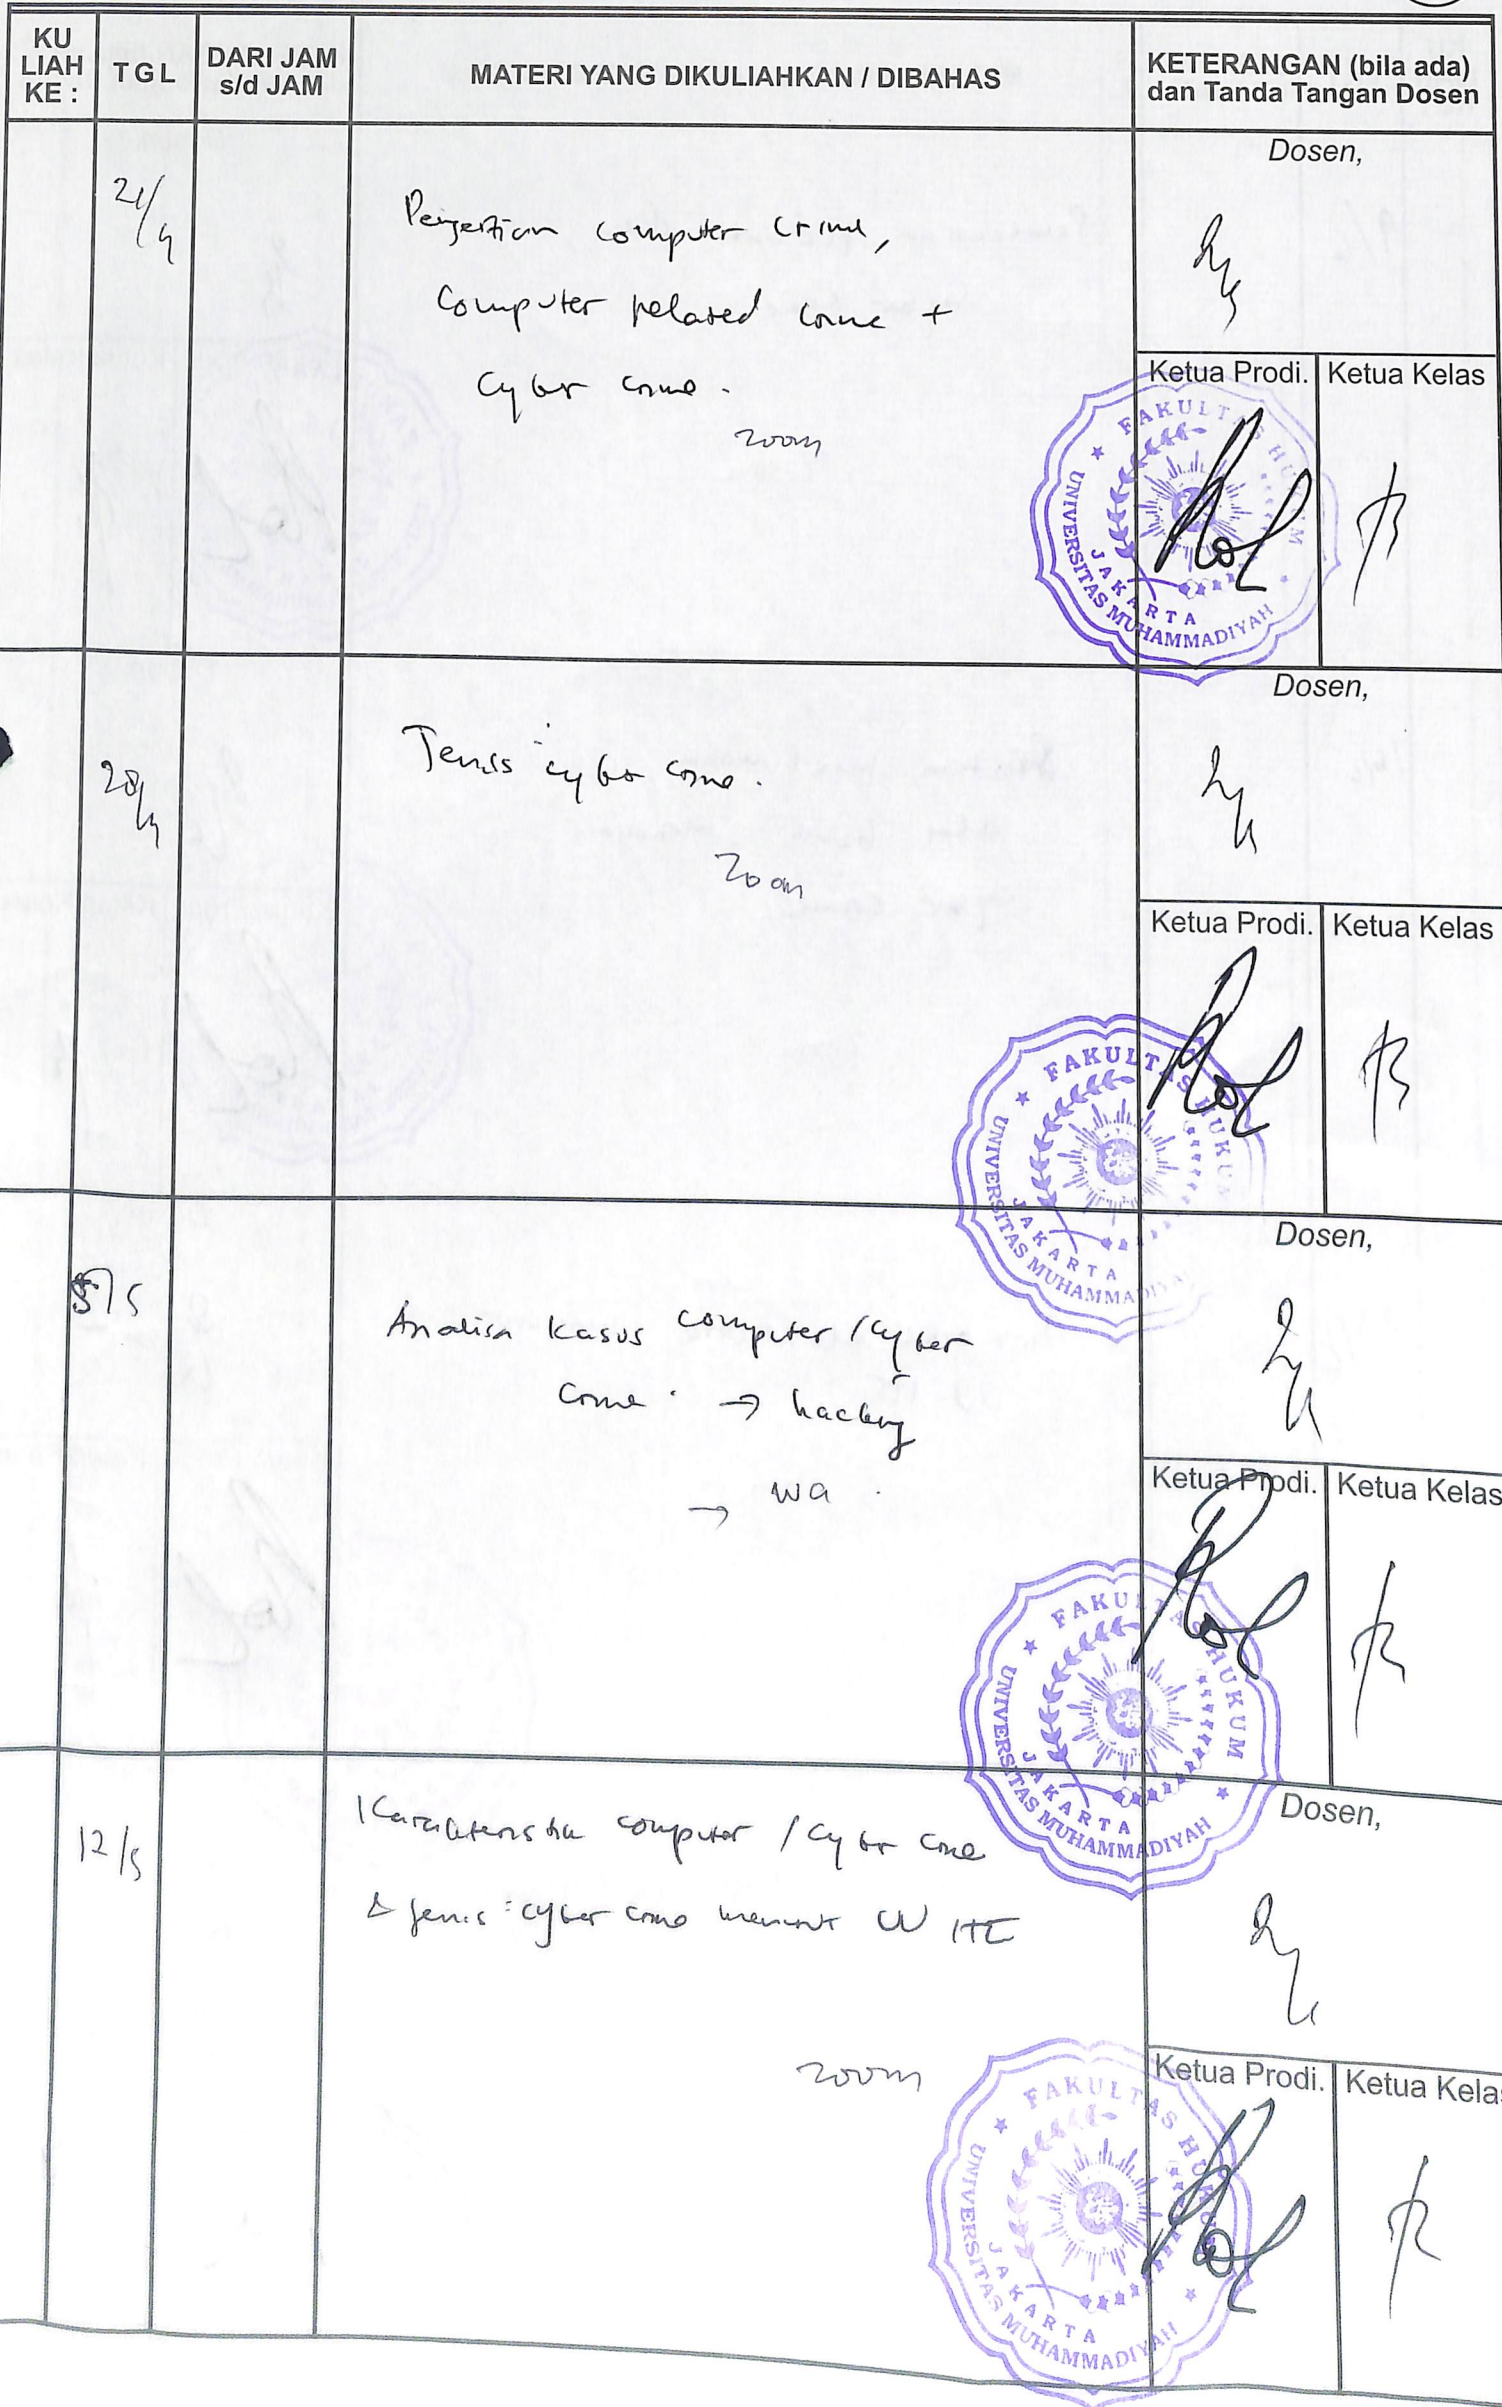 KU
LIAH
KE :
TGL
DARI JAM
s/d JAM
MATERI YANG DIKULIAHKAN / DIBAHAS
KETERANGAN (bila ada)
dan Tanda Tangan Dosen
21/4
Pengertian computer crime,
Computer related crime +
Cyber crime.
zoom
Dosen,
Ketua Prodi.
Ketua Kelas
FAKULTAS HUKUM
UNIVERSITAS MUHAMMADIYAH
JAKARTA
28/4
Jenis² cyber crime.
Zoom
Dosen,
Ketua Prodi.
Ketua Kelas
FAKULTAS HUKUM
UNIVERSITAS MUHAMMADIYAH
JAKARTA
5/5
Analisa kasus computer / cyber
crime. → hacking
→ wa.
Dosen,
Ketua Prodi.
Ketua Kelas
FAKULTAS HUKUM
UNIVERSITAS MUHAMMADIYAH
JAKARTA
12/5
Karakteristik computer / cyber crime
& jenis² cyber crime menurut UU ITE
zoom
Dosen,
Ketua Prodi.
Ketua Kelas
FAKULTAS HUKUM
UNIVERSITAS MUHAMMADIYAH
JAKARTA